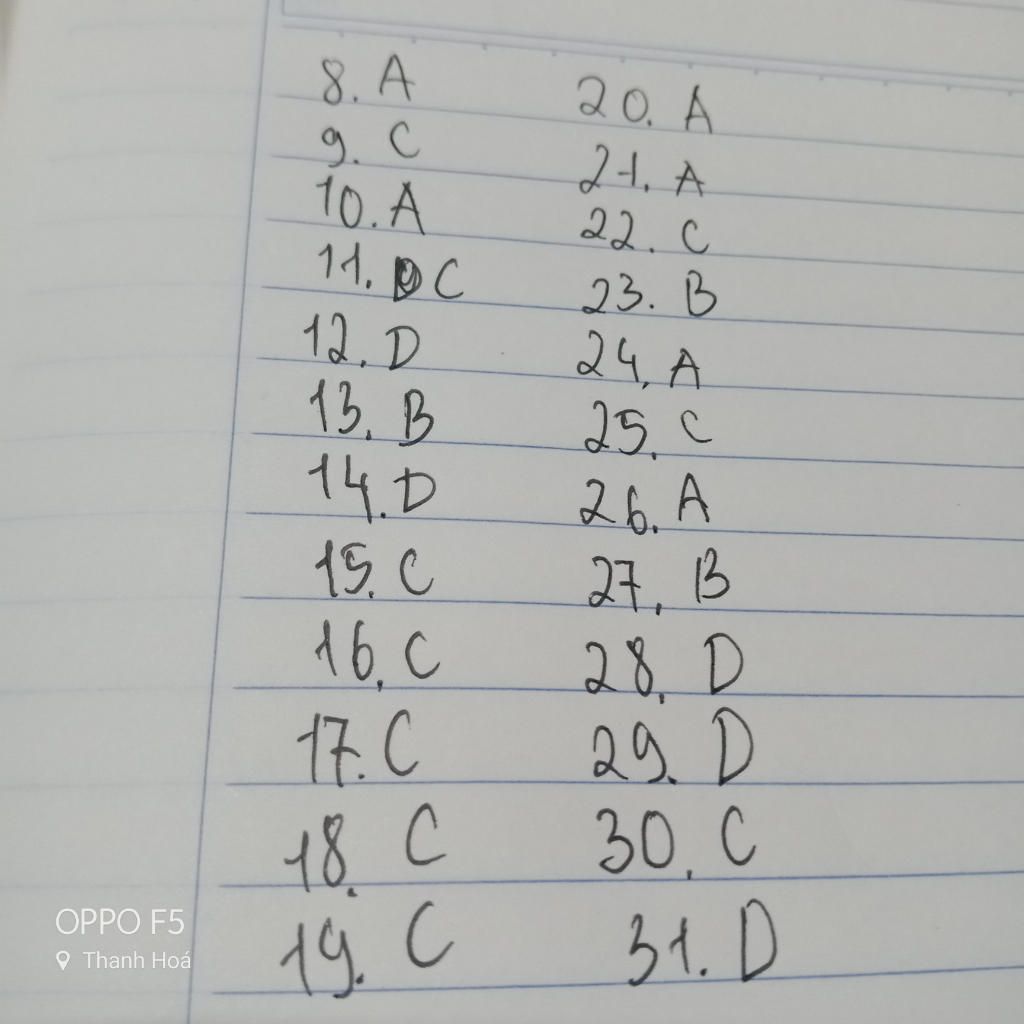 8. A
9. C
10. A
11. C
12. D
13. B
14. D
15. C
16. C
17. C
18. C
19. C
20. A
21. A
22. C
23. B
24. A
25. C
26. A
27. B
28. D
29. D
30. C
31. D
OPPO F5
Thanh Hoá